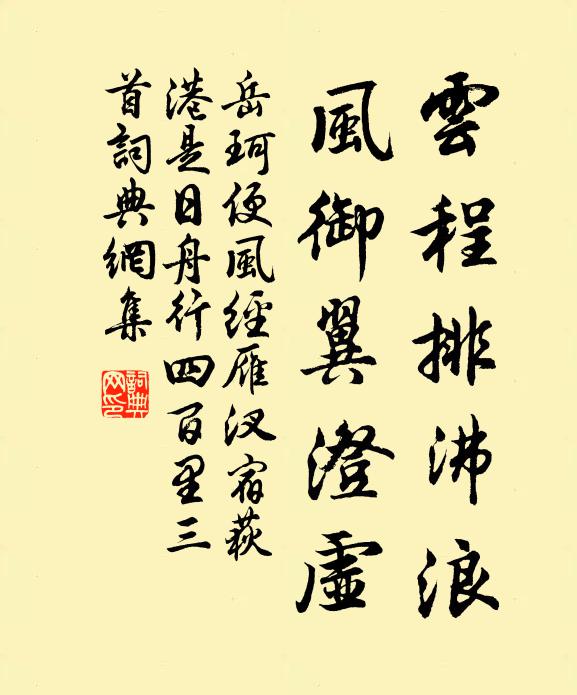 雲程排沸浪
風御翼澄虛
岳珂便風經雁汊宿荻
港是日舟行四百里三
首詞典網集
詞典網印